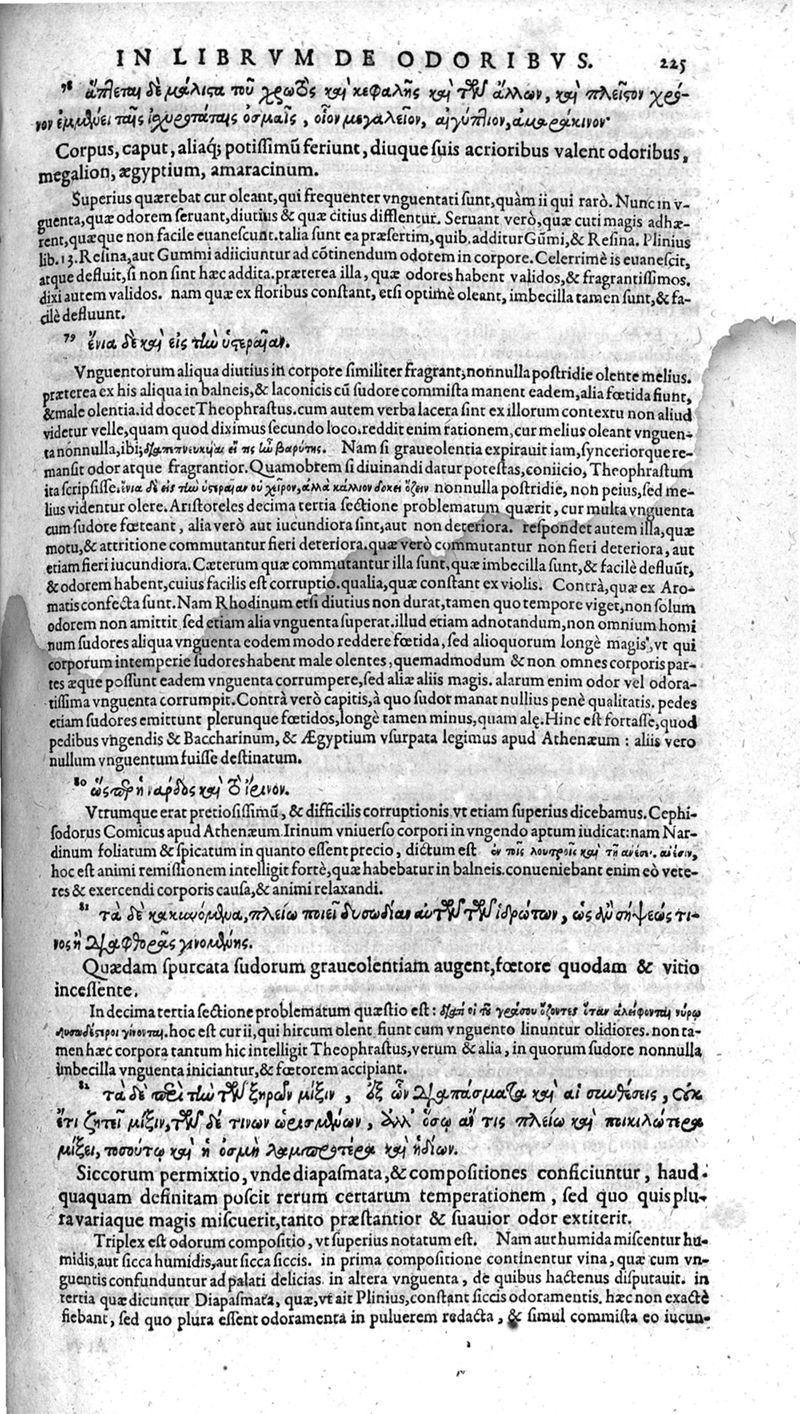 IN LIBRVM DE ODORIBVS. 225
78 ἅπλεται δὲ μάλιστα τοῦ χρωτὸς καὶ κεφαλῆς καὶ τῶν ἄλλων, καὶ πλεῖστον χρό-
νον ἐμμένει ταῖς ἰσχυροτάταις ὀσμαῖς, οἷον μεγαλεῖον, αἰγύπτιον, ἀμαράκινον·
Corpus, caput, aliaq; potissimũ feriunt, diuque suis acrioribus valent odoribus,
megalion, ægyptium, amaracinum.
Superius quærebat cur oleant, qui frequenter vnguentati sunt, quàm ii qui rarò. Nunc in v-
guenta, quæ odorem seruant, diutius & quæ citius difflentur. Seruant verò, quæ cuti magis adhæ-
rent, quæque non facile euanescunt. talia sunt ea præsertim, quib. additur Gũmi, & Resina. Plinius
lib. 13. Resina, aut Gummi adiiciuntur ad cõtinendum odorem in corpore. Celerrimè is euanescit,
atque defluit, si non sint hæc addita. præterea illa, quæ odores habent validos, & fragrantissimos.
dixi autem validos. nam quæ ex floribus constant, etsi optimè oleant, imbecilla tamen sunt, & fa-
cilè defluunt.
79 ἔνια δὲ καὶ εἰς τὴν ὑστεραίαν.
Vnguentorum aliqua diutius in corpore similiter fragrant, nonnulla postridie olente melius.
præterea ex his aliqua in balneis, & laconicis cũ sudore commista manent eadem, alia fœtida fiunt,
& male olentia. id docet Theophrastus. cum autem verba lacera sint ex illorum contextu non aliud
videtur velle, quam quod diximus secundo loco. reddit enim rationem, cur melius oleant vnguen-
ta nonnulla, ibi; Nam si graueolentia expirauit iam, synceriorque re-
mansit odor atque fragrantior. Quamobrem si diuinandi datur potestas, coniicio, Theophrastum
ita scripsisse. ἔνια δὲ εἰς τὴν ὑστεραίαν οὐ χεῖρον, ἀλλὰ κάλλιον δοκεῖ ὄζειν nonnulla postridie, non peius, sed me-
lius videntur olere. Aristoteles decima tertia sectione problematum quærit, cur multa vnguenta
cum sudore fœteant, alia verò aut iucundiora sint, aut non deteriora. respondet autem illa, quæ
motu, & attritione commutantur fieri deteriora. quæ verò commutantur non fieri deteriora, aut
etiam fieri iucundiora. Cæterum quæ commutantur illa sunt, quæ imbecilla sunt, & facilè defluũt,
& odorem habent, cuius facilis est corruptio. qualia, quæ constant ex violis. Contrà, quæ ex Aro-
matis confecta sunt. Nam Rhodinum etsi diutius non durat, tamen quo tempore viget, non solum
odorem non amittit, sed etiam alia vnguenta superat. illud etiam adnotandum, non omnium homi
num sudores aliqua vnguenta eodem modo reddere fœtida, sed alioquorum longè magis, vt qui
corporum intemperie sudores habent male olentes, quemadmodum & non omnes corporis par-
tes æque possunt eadem vnguenta corrumpere, sed aliæ aliis magis. alarum enim odor vel odora-
tissima vnguenta corrumpit. Contrà verò capitis, à quo sudor manat nullius penè qualitatis. pedes
etiam sudores emittunt plerunque fœtidos, longè tamen minus, quam alę. Hinc est fortasse, quod
pedibus vngendis & Baccharinum, & Ægyptium vsurpata legimus apud Athenæum: aliis vero
nullum vnguentum fuisse destinatum.
80 ὥσπερ ἡ νάρδος καὶ τὸ ἴρινον.
Vtrumque erat pretiosissimũ, & difficilis corruptionis vt etiam superius dicebamus. Cephi-
sodorus Comicus apud Athenæum Irinum vniuerso corpori in vngendo aptum iudicat: nam Nar-
dinum foliatum & spicatum in quanto essent precio, dictum est ἐν τοῖς λουτροῖς καὶ τῇ ἀνέσει. ἀνέσιν,
hoc est animi remissionem intelligit fortè, quæ habebatur in balneis. conueniebant enim eò vete-
res & exercendi corporis causa, & animi relaxandi.
81 τὰ δὲ κακινόμενα, πλείω ποιεῖ δυσωδίαν αὐτῶν τῶν ἱδρώτων, ὡς ἂν σήψεώς τι-
νος ἢ διαφθορᾶς γινομένης.
Quædam spurcata sudorum graueolentiam augent, fœtore quodam & vitio
incessente.
In decima tertia sectione problematum quæstio est: διατί οἱ τοῦ γράσου ὄζοντες ὅταν ἀλείφωνται μύρῳ
δυσωδέστεροι γίνονται. hoc est cur ii, qui hircum olent, fiunt cum vnguento linuntur olidiores. non ta-
men hæc corpora tantum hic intelligit Theophrastus, verum & alia, in quorum sudore nonnulla
imbecilla vnguenta iniciantur, & fœtorem accipiant.
82 τὰ δὲ περὶ τὴν τῶν ξηρῶν μίξιν, ἐξ ὧν διαπάσματα καὶ αἱ συνθέσεις, οὐκ
ἔτι ζητεῖ μίξιν, τῶν δέ τινων ὡρισμένων, ἀλλ' ὅσῳ ἄν τις πλείω καὶ ποικιλώτερα
μίξει, τοσούτῳ καὶ ἡ ὀσμὴ λαμπροτέρα καὶ ἡδίων.
Siccorum permixtio, vnde diapasmata, & compositiones conficiuntur, haud-
quaquam definitam poscit rerum certarum temperationem, sed quo quis plu-
ra variaque magis miscuerit, tanto præstantior & suauior odor extiterit.
Triplex est odorum compositio, vt superius notatum est. Nam aut humida miscentur hu-
midis, aut sicca humidis, aut sicca siccis. in prima compositione continentur vina, quæ cum vn-
guentis confunduntur ad palati delicias. in altera vnguenta, de quibus hactenus disputauit. in
tertia quæ dicuntur Diapasmata, quæ, vt ait Plinius, constant siccis odoramentis. hæc non exactè
fiebant, sed quo plura essent odoramenta in puluerem redacta, & simul commista eo iucun-